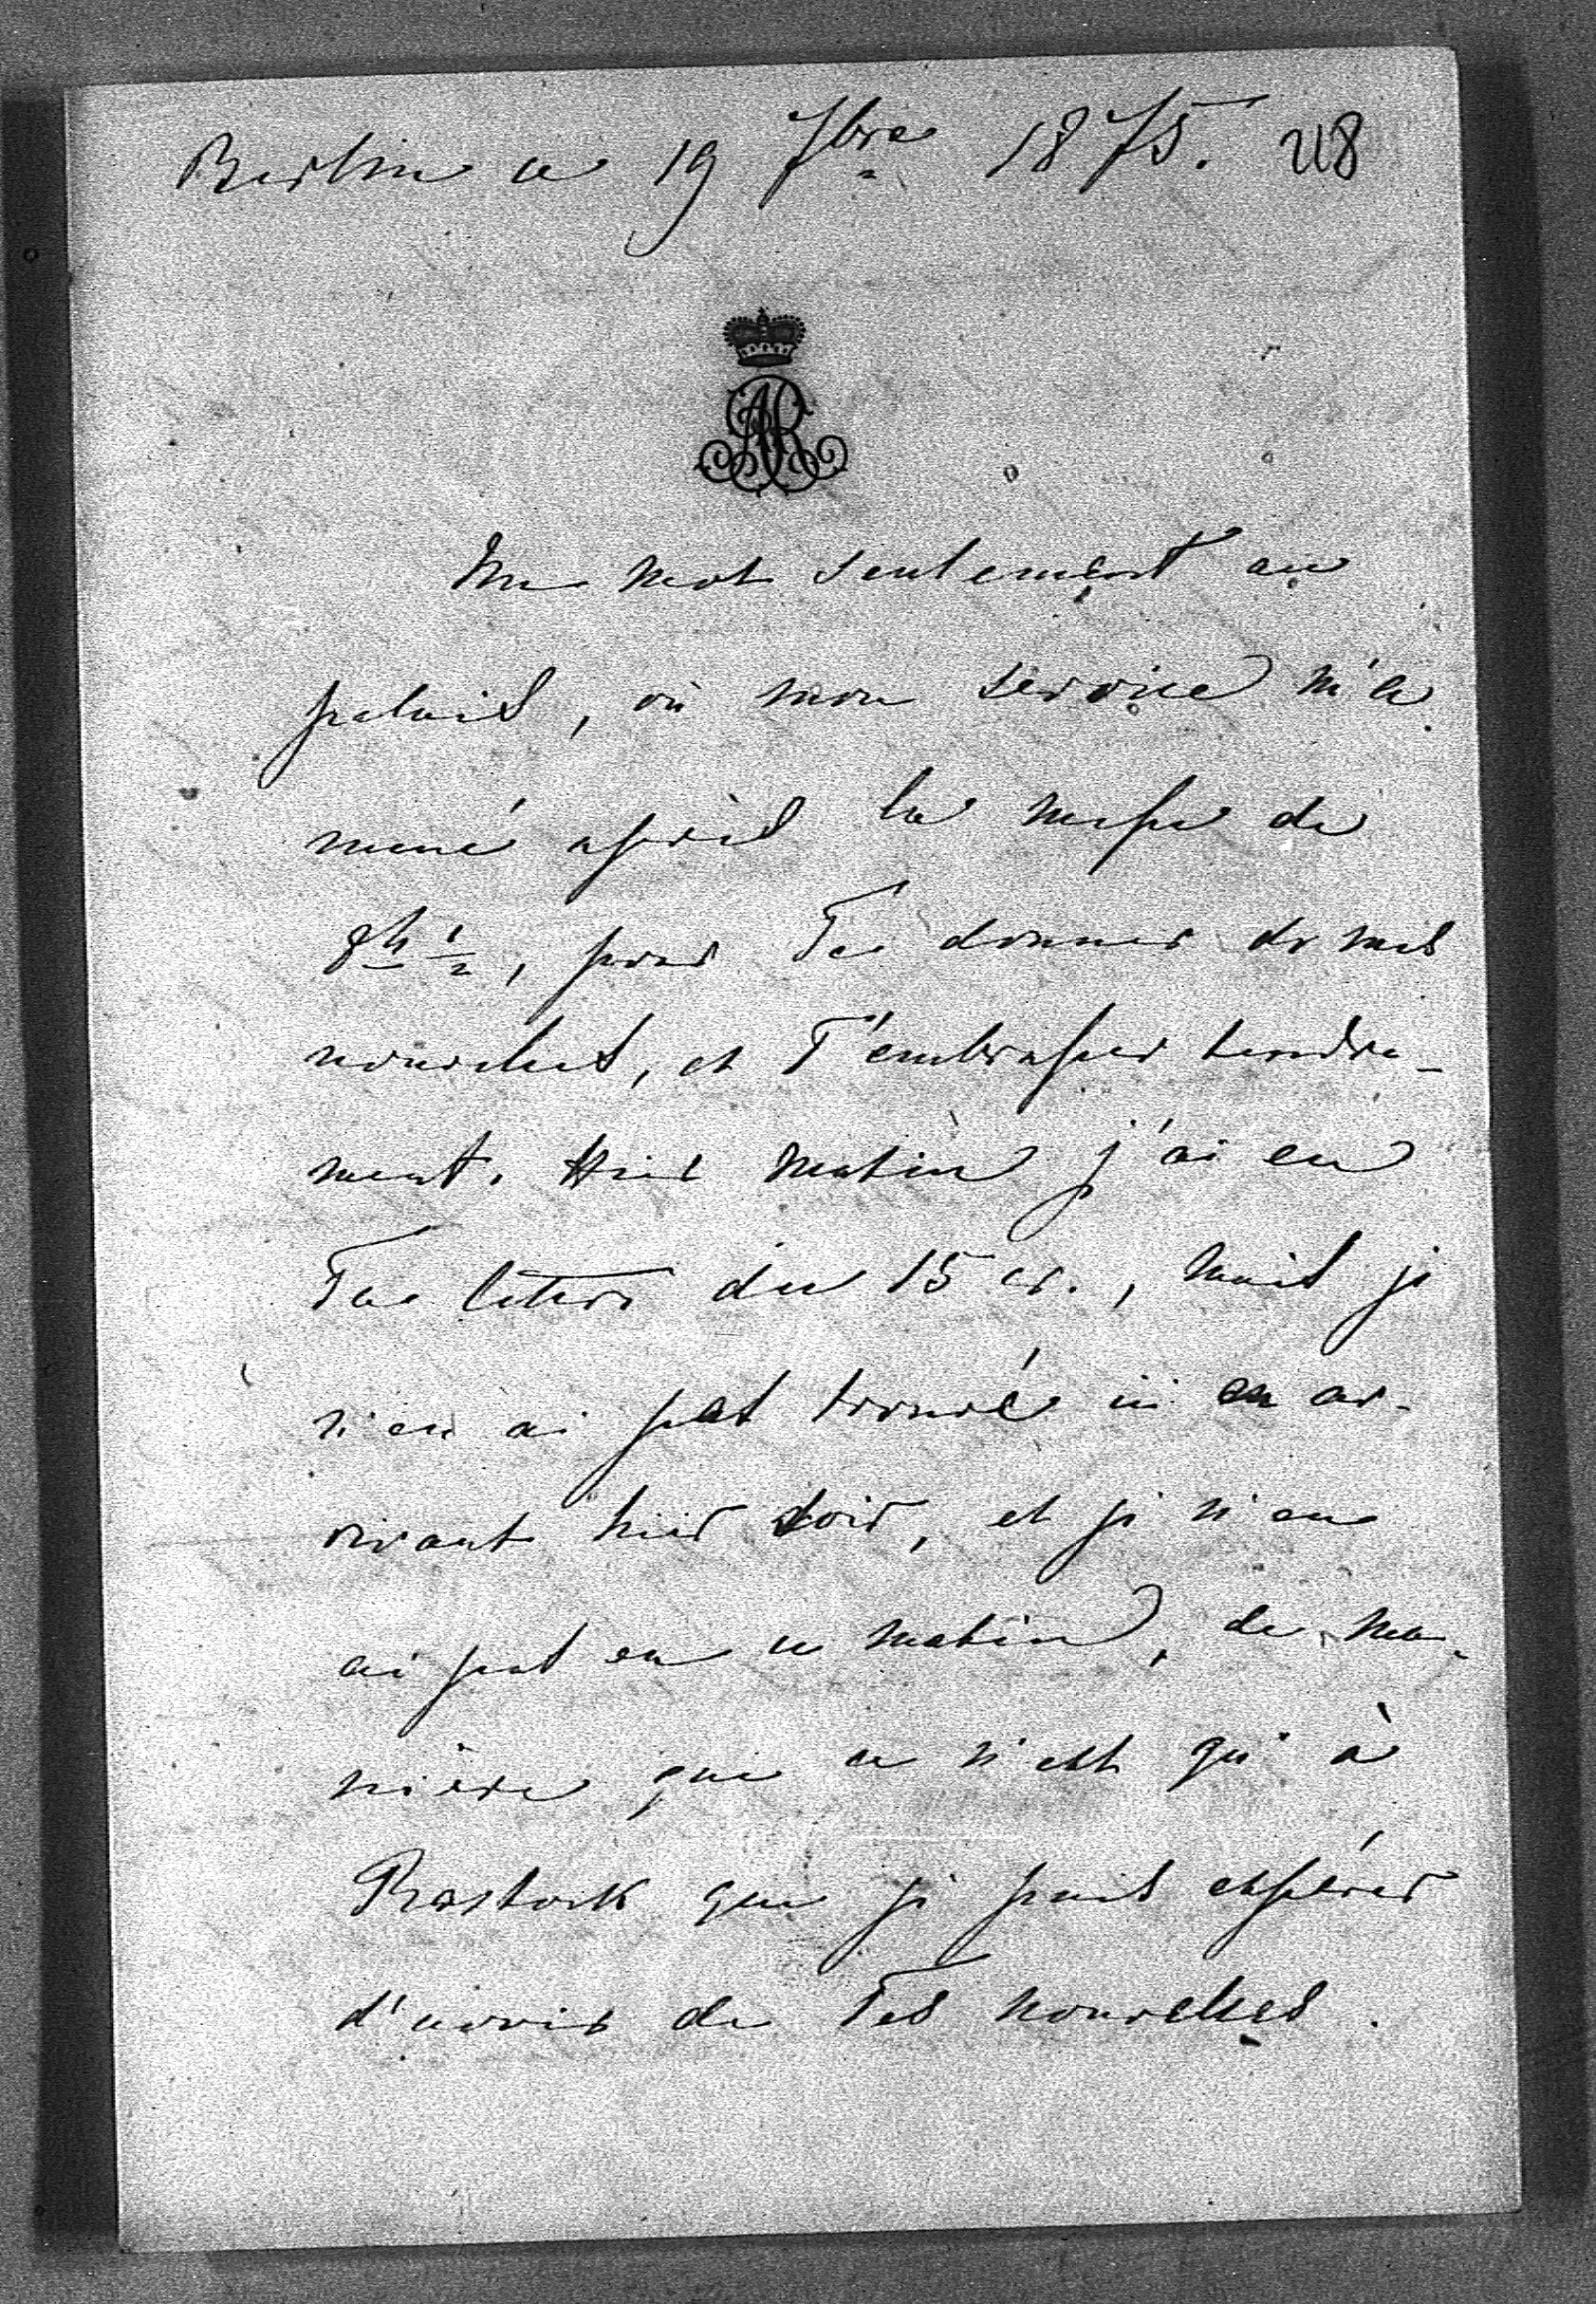 Berlin ce 19 7bre 1875. 218
AR
Un mot seulement au
palais, où mon service m'a
mené après la messe de
8h 1/2, pour Te donner de mes
nouvelles, et T'embrasser tendre-
ment. Hier matin j'ai eu
Ta lettre du 15 cr., mais je
n'en ai pas trouvé ici en ar-
rivant hier soir, et je n'en
ai pas eu ce matin, de ma-
nière que ce n'est qu'à
Rostock que je puis espérer
d'avoir de Tes nouvelles.